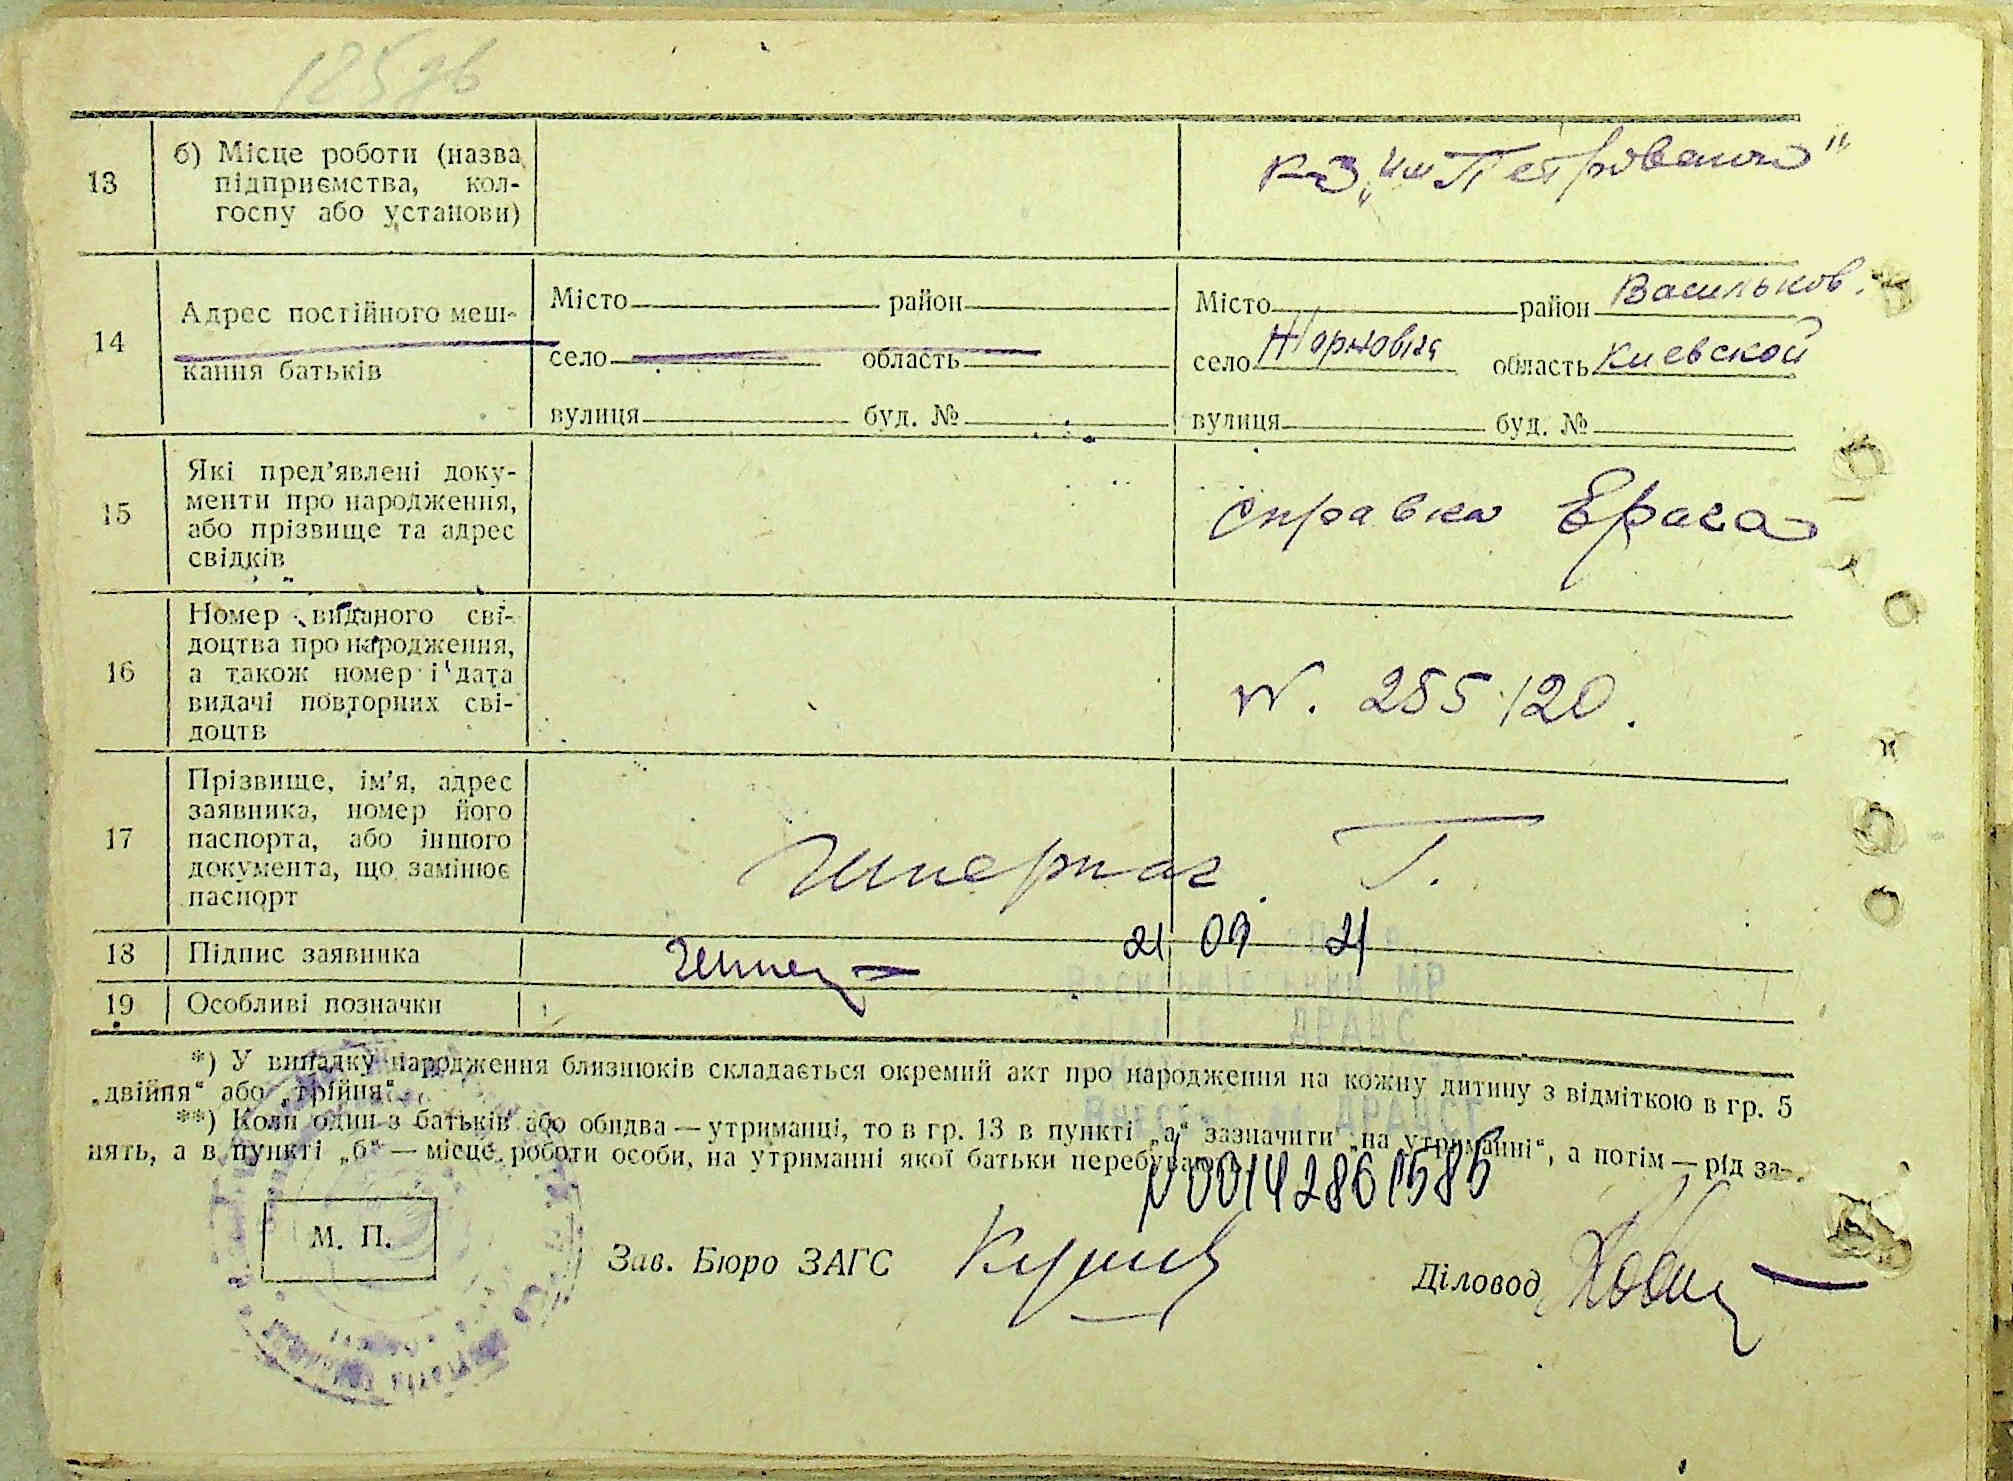 125 зв
13
б) Місце роботи (назва
підприємства, кол-
госпу або установи)
к-з „им Петровского"
14
Адрес постійного меш-
кання батьків
Місто район
село область
вулиця буд. №
Місто район Васильков.
село область Киевской
вулиця буд. №
15
Які пред’явлені доку-
менти про народження,
або прізвище та адрес
свідків
справка
16
Номер виданого сві-
доцтва про народження,
а також номер і дата
видачі повторних сві-
доцтв
N. 255120.
17
Прізвище, ім’я, адрес
заявника, номер його
паспорта, або іншого
документа, що замінює
паспорт
Г.
18
Підпис заявника
21 09 21
МР
ДРАЦС
19
Особливі позначки
*) У випадку народження близнюків складається окремий акт про народження на кожну дитину з відміткою в гр. 5
„двійня“ або „трійня“.
**) Коли один з батьків або обидва — утриманці, то в гр. 13 в пункті „а“ зазначити „на утриманні“, а потім — рід за-
нять, а в пункті „б“ — місце роботи особи, на утриманні якої батьки перебувають.
Внесено до ДРАЦСГ
N 00142861585
М. П.
Зав. Бюро ЗАГС
Діловод